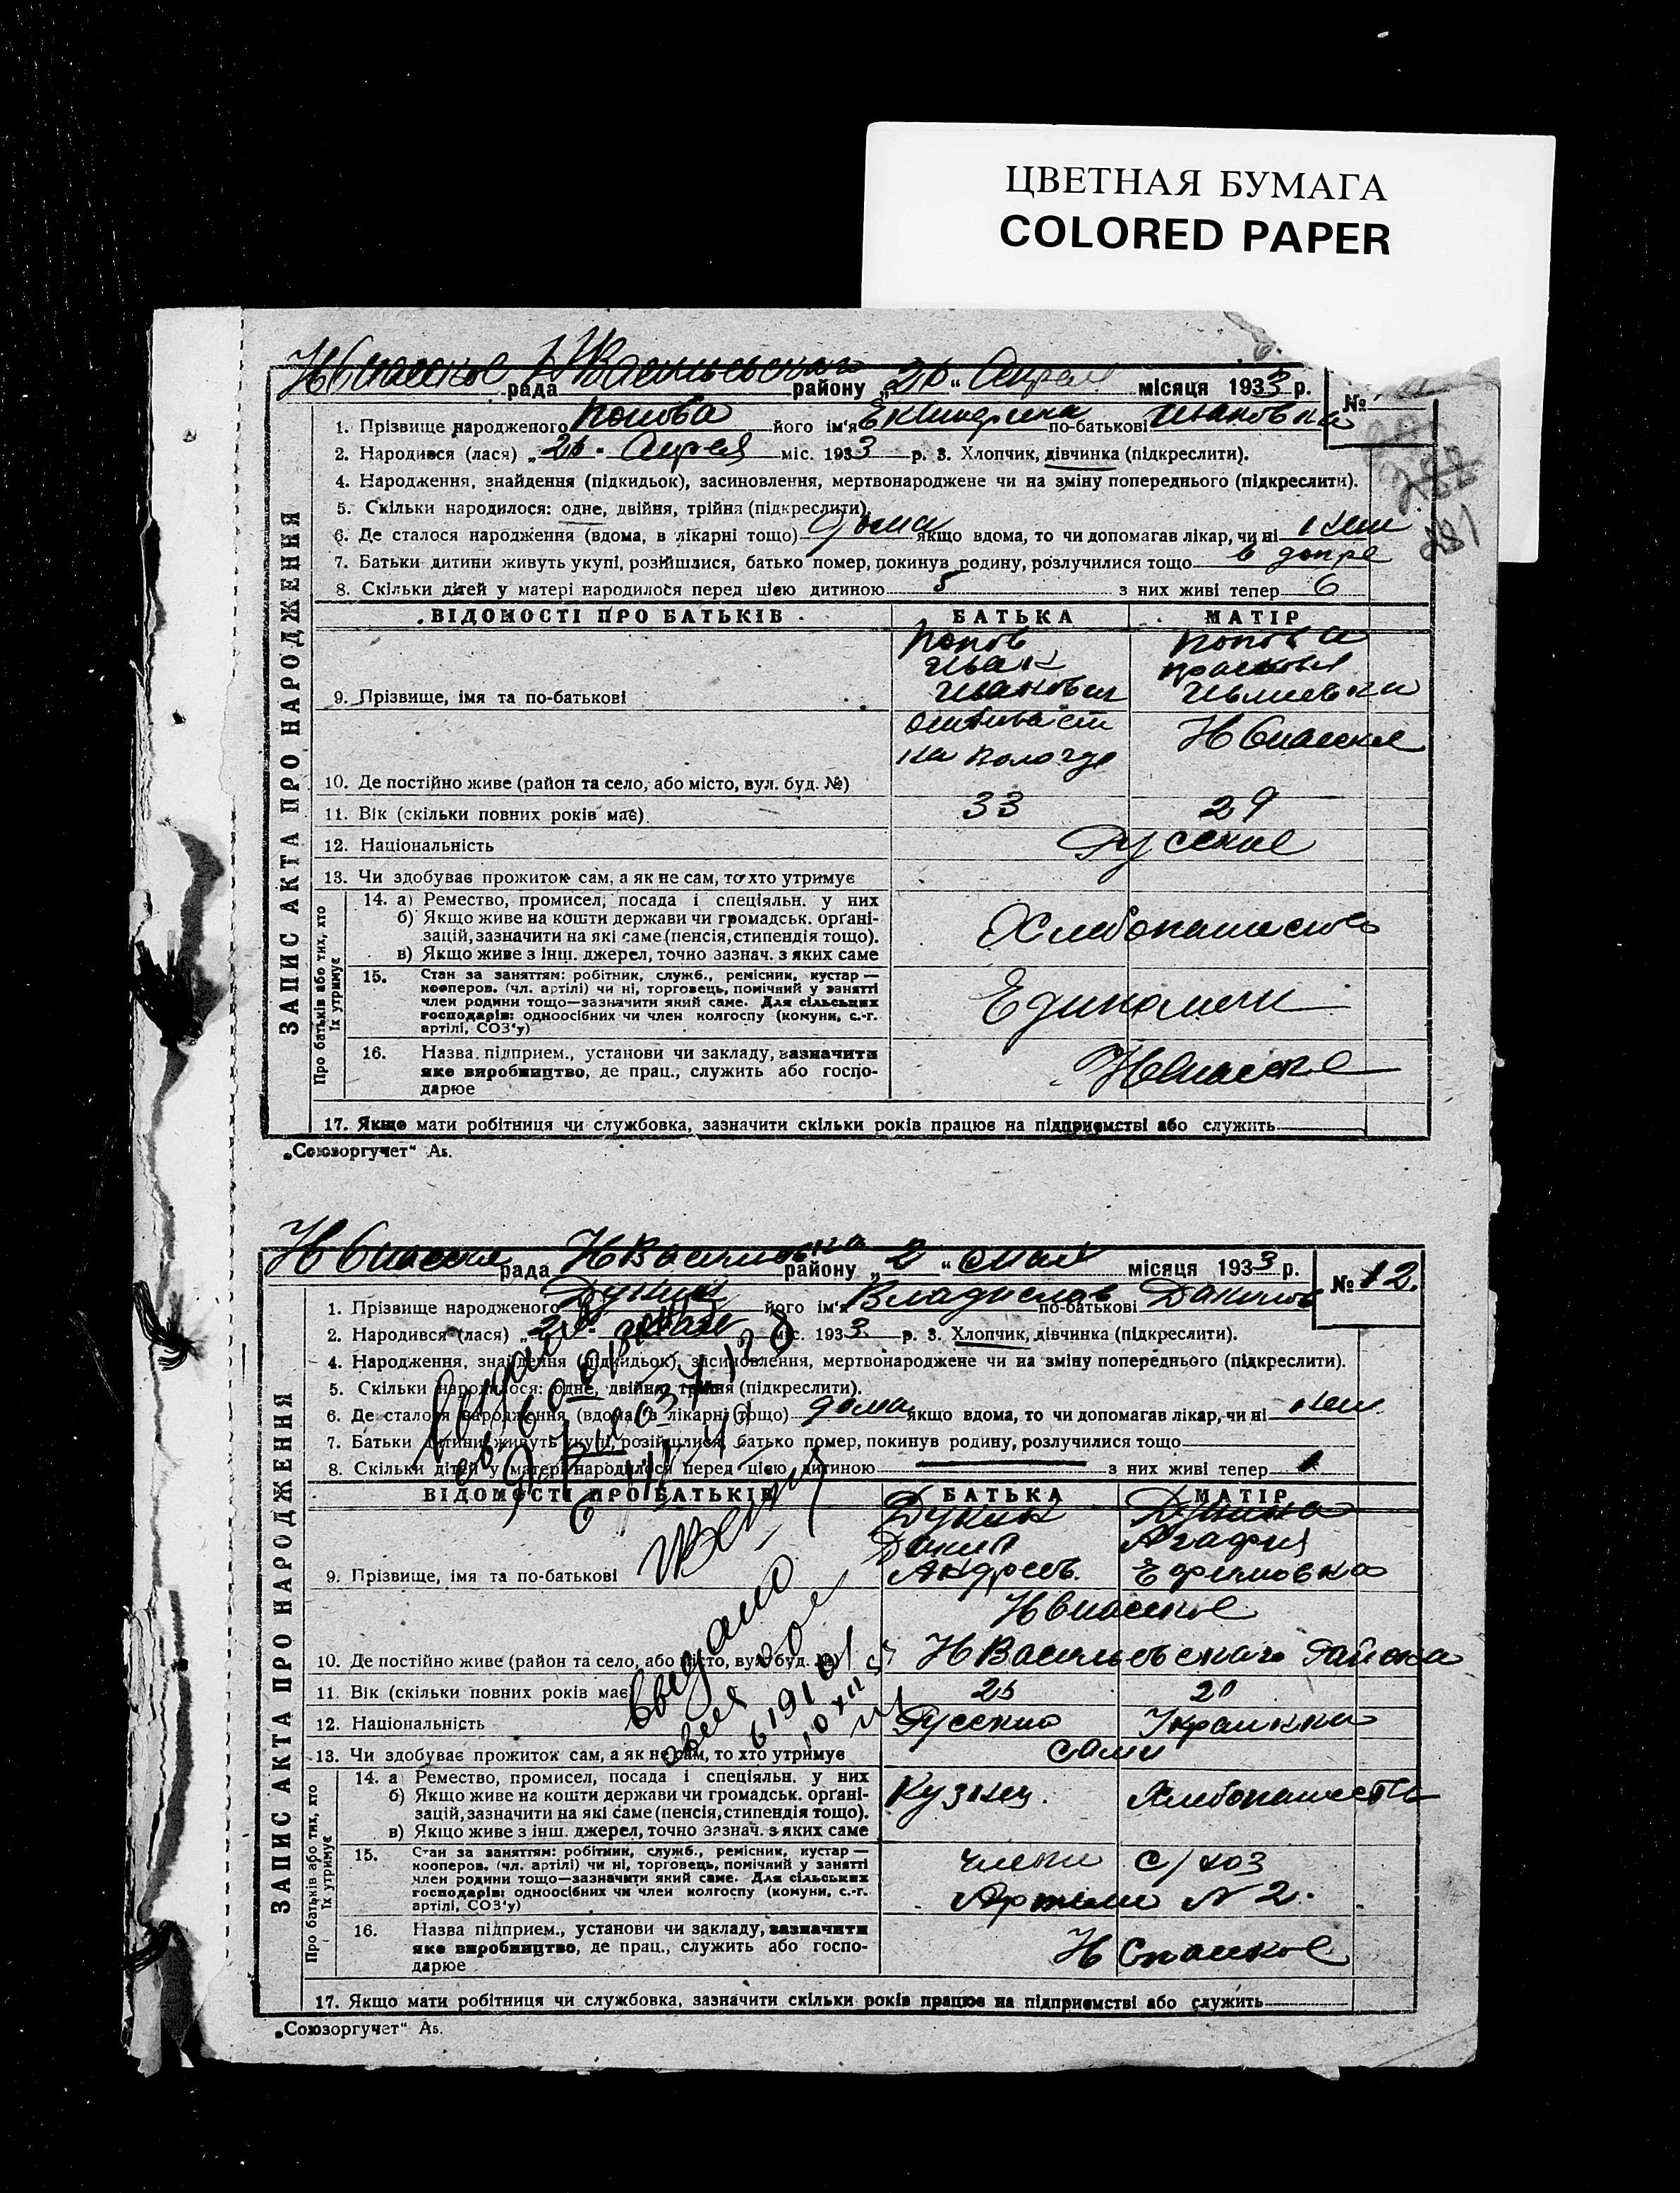 ЦВЕТНАЯ БУМАГА
COLORED PAPER
рада району „26“ Апреля місяця 1933 р. №
1. Прізвище народженого Попова його ім'я по-батькові Ивановна
2. Народився (лася) „26“ Апреля міс. 1933 р. 3. Хлопчик, дівчинка (підкреслити).
4. Народження, знайдення (підкидьок), засиновлення, мертвонароджене чи на зміну попереднього (підкреслити).
5. Скільки народилося: одне, двійня, трійня (підкреслити).
6. Де сталося народження (вдома, в лікарні тощо) дома якщо вдома, то чи допомагав лікар, чи ні
7. Батьки дитини живуть укупі, розійшлися, батько помер, покинув родину, розлучилися тощо в допре
8. Скільки дітей у матері народилося перед цією дитиною 5 з них живі тепер 6
281
ЗАПИС АКТА ПРО НАРОДЖЕННЯ
ВІДОМОСТІ ПРО БАТЬКІВ БАТЬКА МАТІР
Попов Попова
Иван Прасковья
9. Прізвище, імя та по-батькові Иванович
Н Спаское
10. Де постійно живе (район та село, або місто, вул. буд. №)
11. Вік (скільки повних років має) 33 29
12. Національність Русские
13. Чи здобуває прожиток сам, а як не сам, то хто утримує
Про батьків або тих, хто їх утримує
14. а) Ремество, промисел, посада і спеціяльн. у них
б) Якщо живе на кошти держави чи громадськ. органі-
зацій, зазначити на які саме (пенсія, стипендія тощо). Хлебопашество
в) Якщо живе з інш. джерел, точно зазнач. з яких саме
15. Стан за заняттям: робітник, служб., ремісник, кустар —
кооперов. (чл. артілі) чи ні, торговець, помічний у занятті
член родини тощо—зазначити який саме. Для сільських
господарів: одноосібних чи член колгоспу (комуни, с.-г.
артілі, СОЗ'у)
16. Назва підприєм., установи чи закладу, зазначити
яке виробництво, де прац., служить або госпо-
дарює
17. Якщо мати робітниця чи службовка, зазначити скільки років працює на підприємстві або служить
„Союзоргучет“ Аб.
рада району „2“ мая місяця 1933 р. № 12.
1. Прізвище народженого Дукин його ім'я Владислав по-батькові Данилов
2. Народився (лася) міс. 1933 р. 3. Хлопчик, дівчинка (підкреслити).
4. Народження, знайдення (підкидьок), засиновлення, мертвонароджене чи на зміну попереднього (підкреслити).
5. Скільки народилося: одне, двійня, трійня (підкреслити).
6. Де сталося народження (вдома, в лікарні тощо) дома якщо вдома, то чи допомагав лікар, чи ні
7. Батьки дитини живуть укупі, розійшлися, батько помер, покинув родину, розлучилися тощо
8. Скільки дітей у матері народилося перед цією дитиною з них живі тепер 1
ЗАПИС АКТА ПРО НАРОДЖЕННЯ
ВІДОМОСТІ ПРО БАТЬКІВ БАТЬКА МАТІР
Дукин Дукина
Данил Агафия
9. Прізвище, імя та по-батькові Андреев. Ефимовна
Н Спаское
10. Де постійно живе (район та село, або місто, вул. буд. №) Н Васильевского района
11. Вік (скільки повних років має)
12. Національність Русский Украинка
13. Чи здобуває прожиток сам, а як не сам, то хто утримує сами
Про батьків або тих, хто їх утримує
14. а) Ремество, промисел, посада і спеціяльн. у них
б) Якщо живе на кошти держави чи громадськ. органі- Кузнец. Хлебопашество
зацій, зазначити на які саме (пенсія, стипендія тощо).
в) Якщо живе з інш. джерел, точно зазнач. з яких саме
15. Стан за заняттям: робітник, служб., ремісник, кустар —
кооперов. (чл. артілі) чи ні, торговець, помічний у занятті члены с/хоз
член родини тощо—зазначити який саме. Для сільських
господарів: одноосібних чи член колгоспу (комуни, с.-г. Артели N 2.
артілі, СОЗ'у)
16. Назва підприєм., установи чи закладу, зазначити
яке виробництво, де прац., служить або госпо- Н Спаское
дарює
17. Якщо мати робітниця чи службовка, зазначити скільки років працює на підприємстві або служить
„Союзоргучет“ Аб.